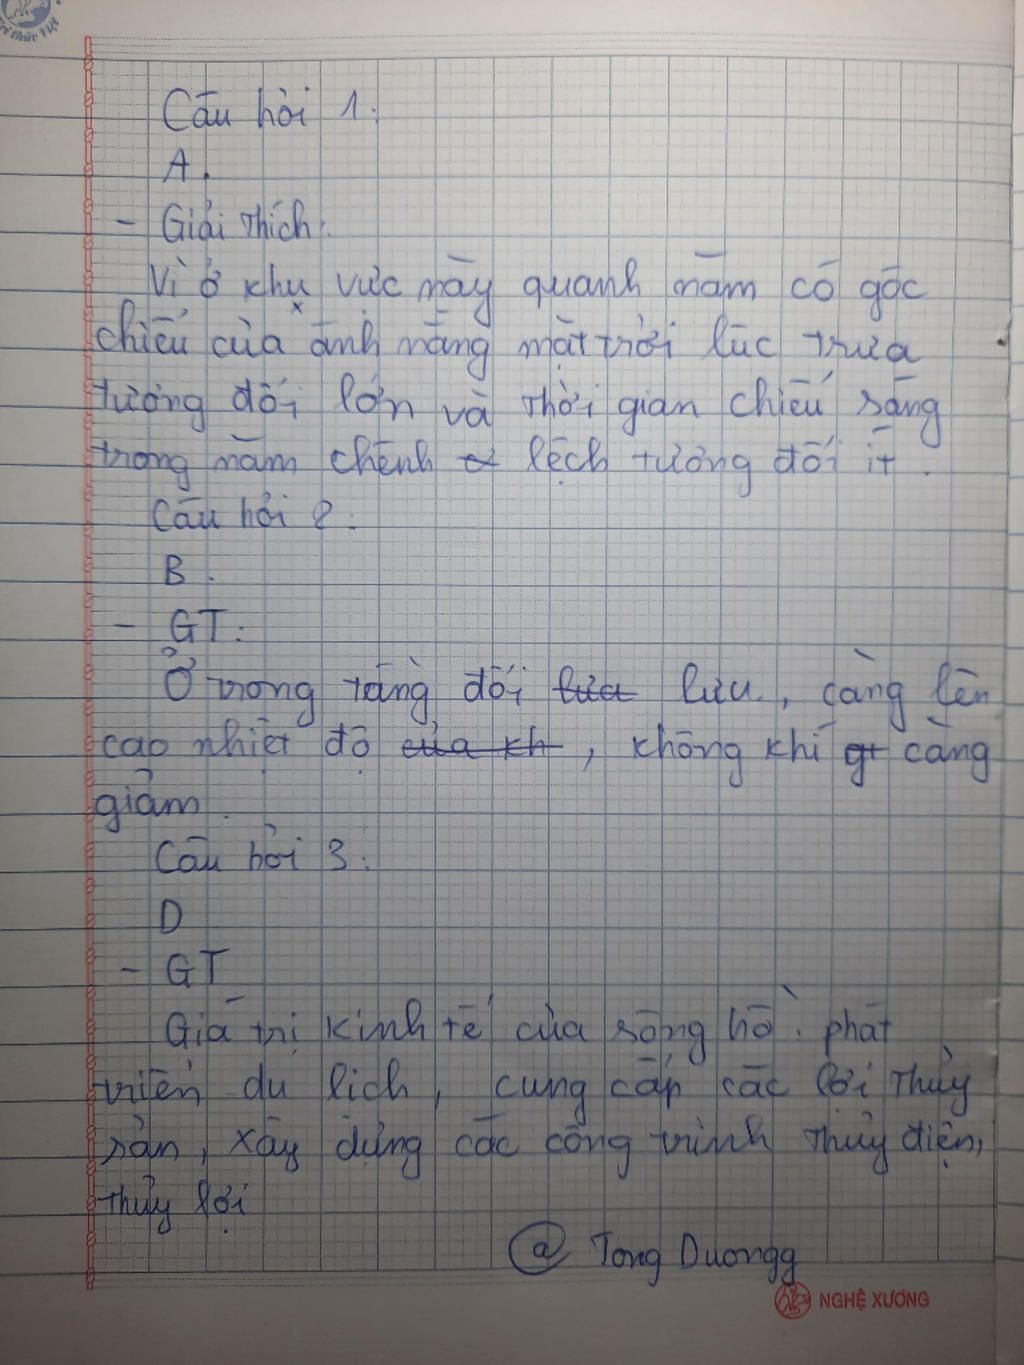 Trí thức Việt
Câu hỏi 1:
A.
- Giải thích:
Vì ở khu vực này quanh năm có góc
chiếu của ánh nắng mặt trời lúc trưa
tương đối lớn và thời gian chiếu sáng
trong năm chênh lệch tương đối ít.
Câu hỏi 2:
B.
- GT:
Ở trong tầng đối lưu, càng lên
cao nhiệt độ, không khí càng
giảm.
Câu hỏi 3:
D
- GT
Giá trị kinh tế của sông hồ: phát
triển du lịch, cung cấp các lợi thủy
sản, xây dựng các công trình thủy điện,
thủy lợi
@ Tong Duongg
NGHỆ XƯƠNG